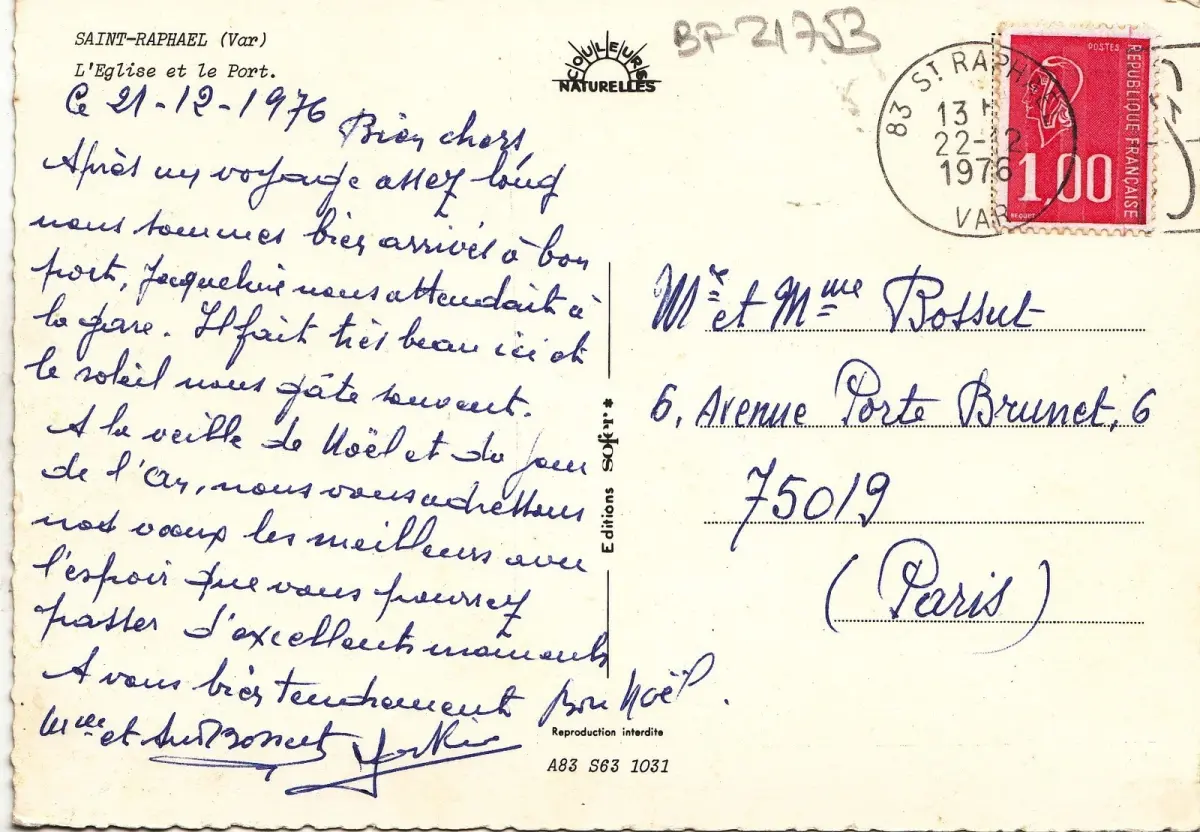 SAINT-RAPHAEL (Var)
L'Eglise et le Port.
COULEURS
NATURELLES
BF 21753
83 ST RAPHAEL
13 H
22-12
1976
VAR
POSTES
REPUBLIQUE FRANÇAISE
1,00
BEQUET
Ce 21-12-1976
Bien chers,
Après un voyage assez long
nous sommes bien arrivés à bon
port, Jacqueline nous attendait à
la gare. Il fait très beau ici et
le soleil nous gâte souvent.
A la veille de Noël et du jour
de l'An, nous vous adressons
nos vœux les meilleurs avec
l'espoir que vous pourrez
passer d'excellents moments
A vous bien tendrement Bon Noël.
Mme et Bossut
Editions sofer *
Mr et Mme Bossut
6, Avenue Porte Brunet, 6
75019
(Paris)
Reproduction interdite
A83 S63 1031